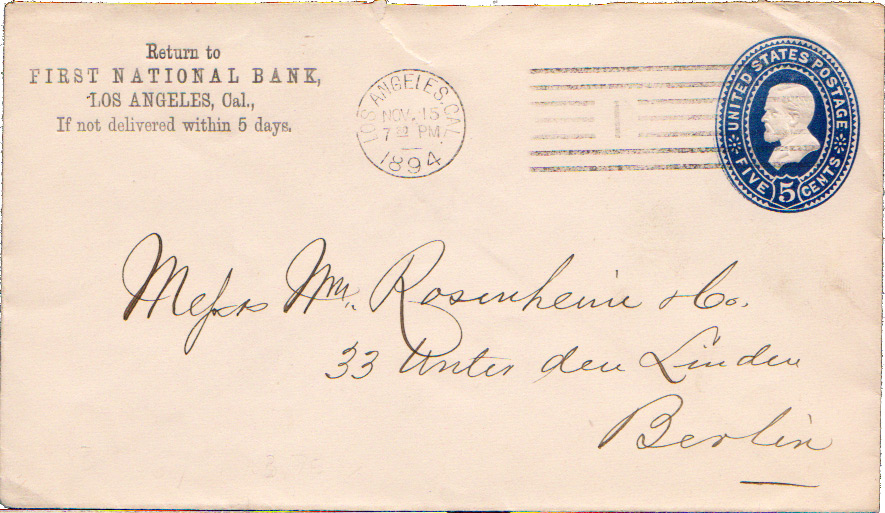 Return to
FIRST NATIONAL BANK,
LOS ANGELES, Cal.,
If not delivered within 5 days.
LOS ANGELES, CAL.
NOV. 15
7 PM
1894
1
UNITED STATES POSTAGE
FIVE 5 CENTS
Messrs Wm. Rosenheim & Co.
33 Unter den Linden
Berlin